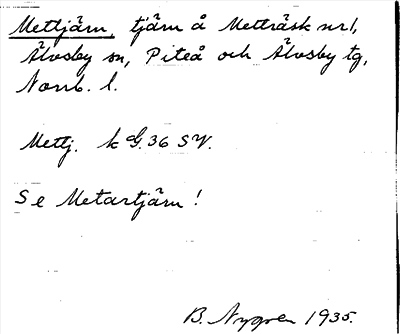 Mettjärn, tjärn å Metträsk nr 1,
Älvsby sn, Piteå och Älvsby tg,
Norrb. l.
Mettj. k G. 36 SV.
Se Metartjärn!
B. Nygren 1935.